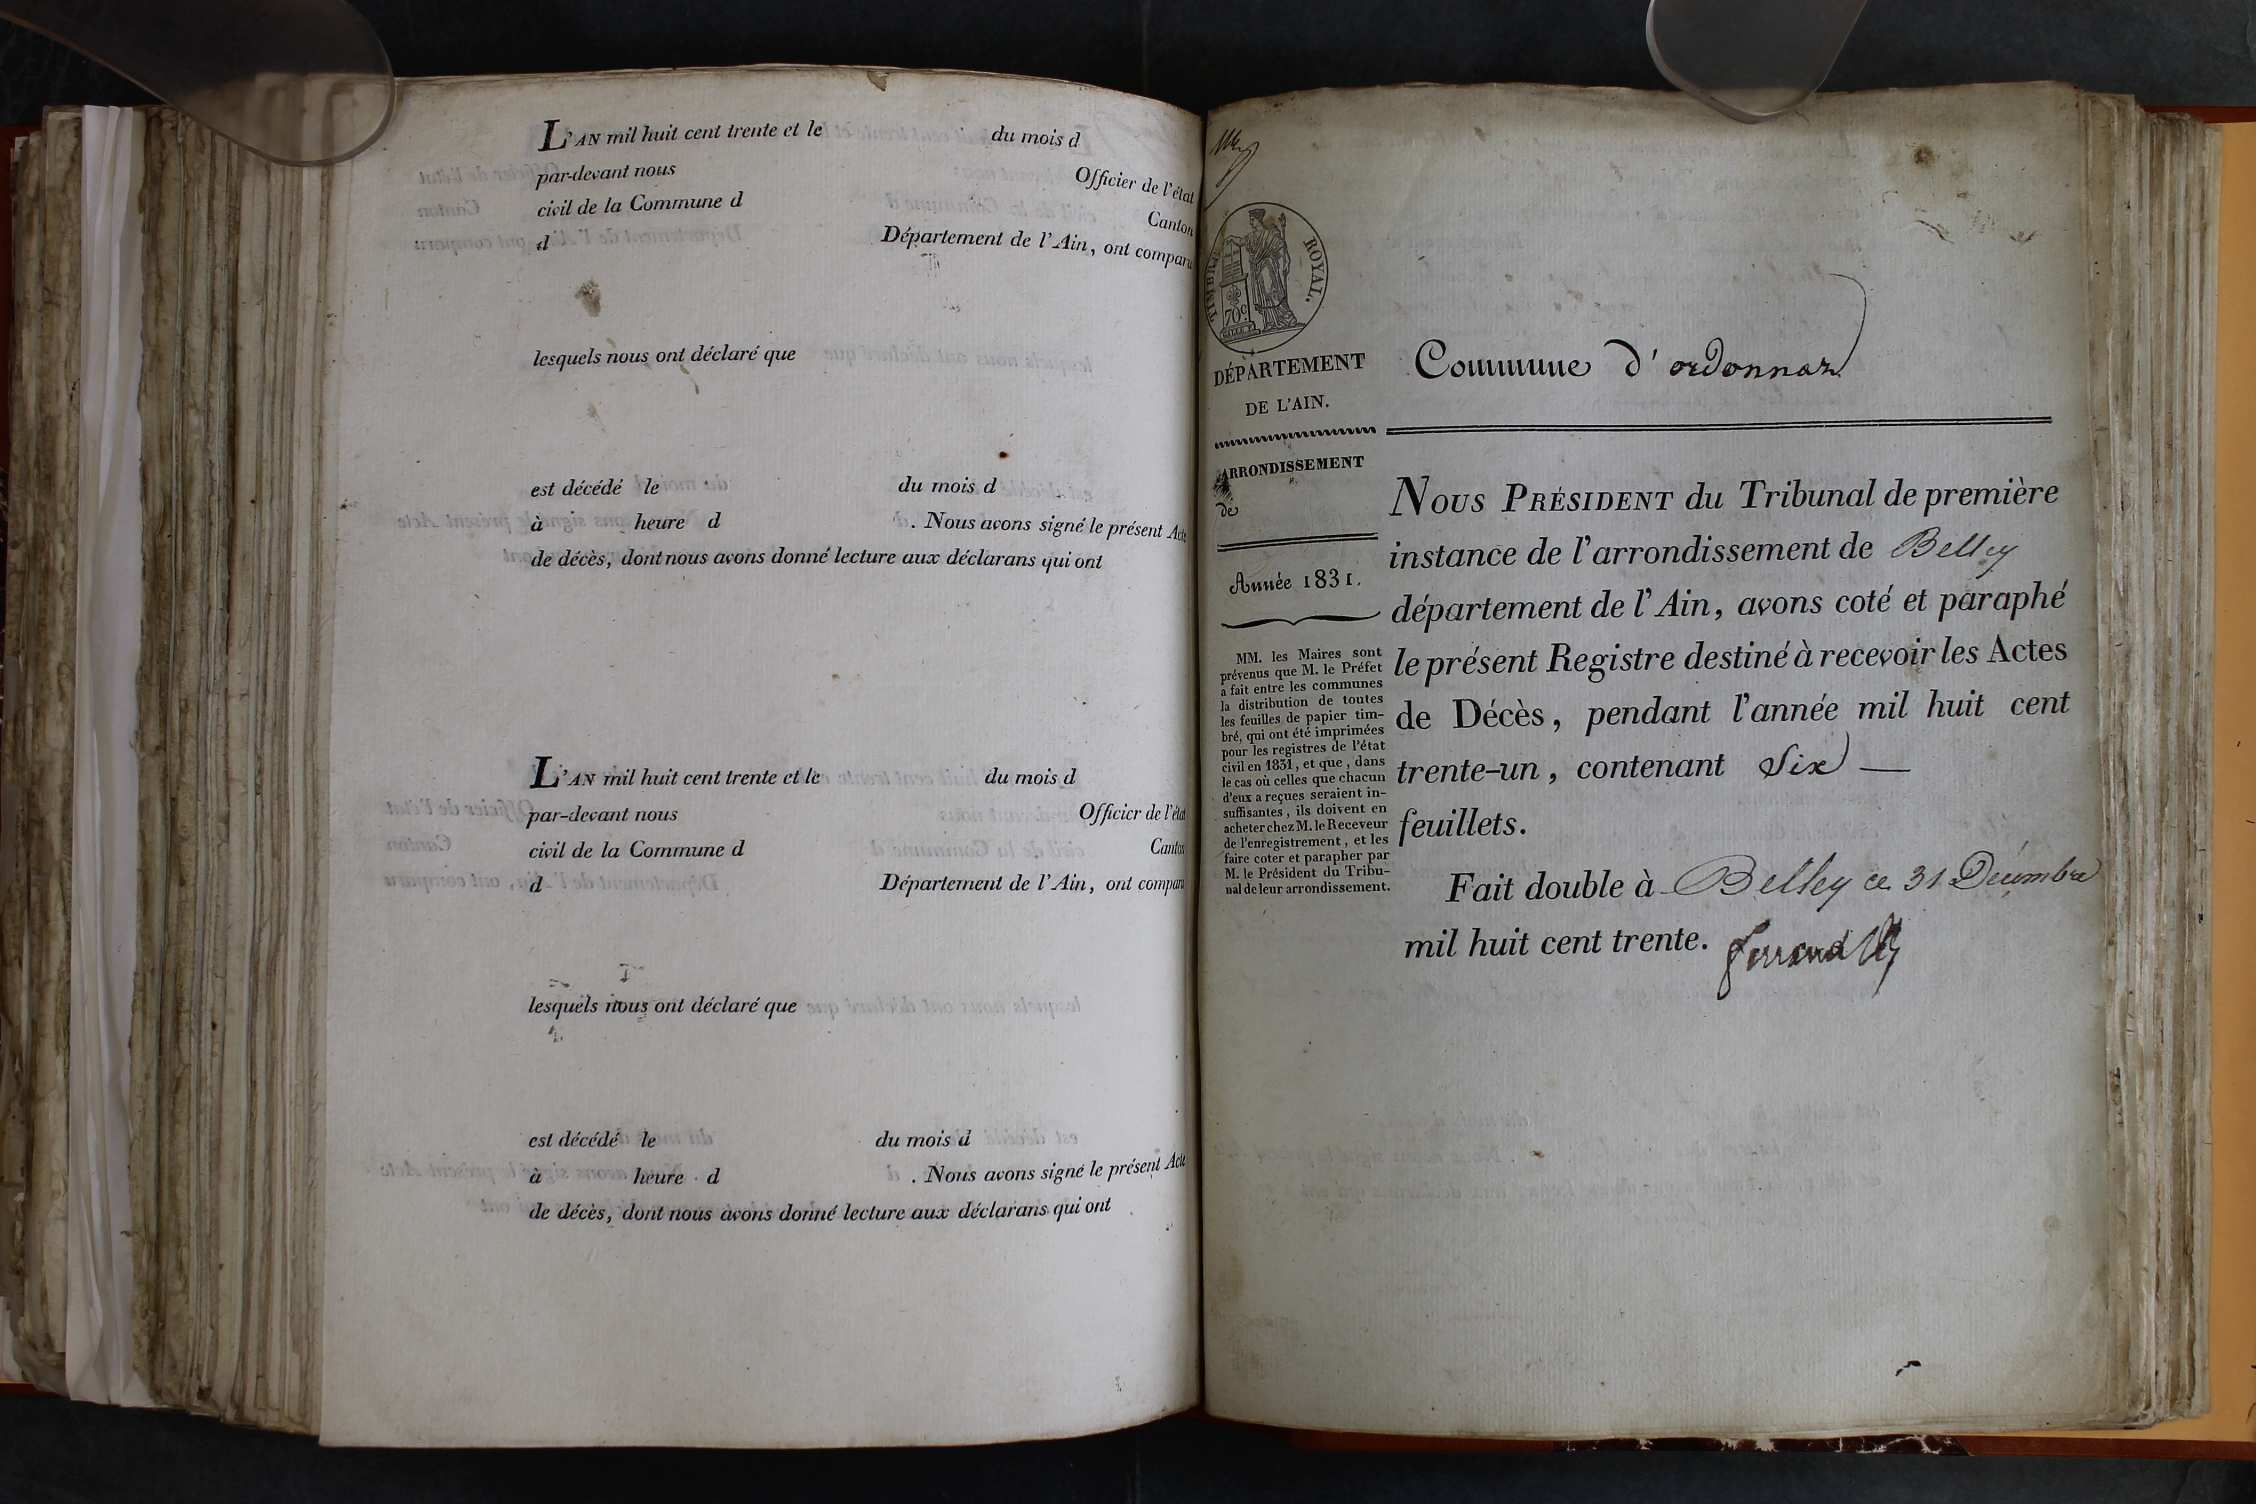 L'AN mil huit cent trente et le du mois d
par-devant nous Officier de l'état
civil de la Commune d Canton
d Département de l'Ain, ont comparu
lesquels nous ont déclaré que
est décédé le du mois d
à heure d . Nous avons signé le présent Acte
de décès, dont nous avons donné lecture aux déclarans qui ont
L'AN mil huit cent trente et le du mois d
par-devant nous Officier de l'état
civil de la Commune d Canton
d Département de l'Ain, ont comparu
lesquels nous ont déclaré que
est décédé le du mois d
à heure d . Nous avons signé le présent Acte
de décès, dont nous avons donné lecture aux déclarans qui ont
TIMBRE ROYAL.
70c
DÉPARTEMENT
DE L'AIN.
ARRONDISSEMENT
de
Année 1831.
MM. les Maires sont
prévenus que M. le Préfet
a fait entre les communes
la distribution de toutes
les feuilles de papier tim-
bré, qui ont été imprimées
pour les registres de l'état
civil en 1831, et que, dans
le cas où celles que chacun
d'eux a reçues seraient in-
suffisantes, ils doivent en
acheter chez M. le Receveur
de l'enregistrement, et les
faire coter et parapher par
M. le Président du Tribu-
nal de leur arrondissement.
Commune d'ordonnaz
NOUS PRÉSIDENT du Tribunal de première
instance de l'arrondissement de Belley
département de l'Ain, avons coté et paraphé
le présent Registre destiné à recevoir les Actes
de Décès, pendant l'année mil huit cent
trente-un, contenant Six —
feuillets.
Fait double à Belley ce 31 Décembre
mil huit cent trente.